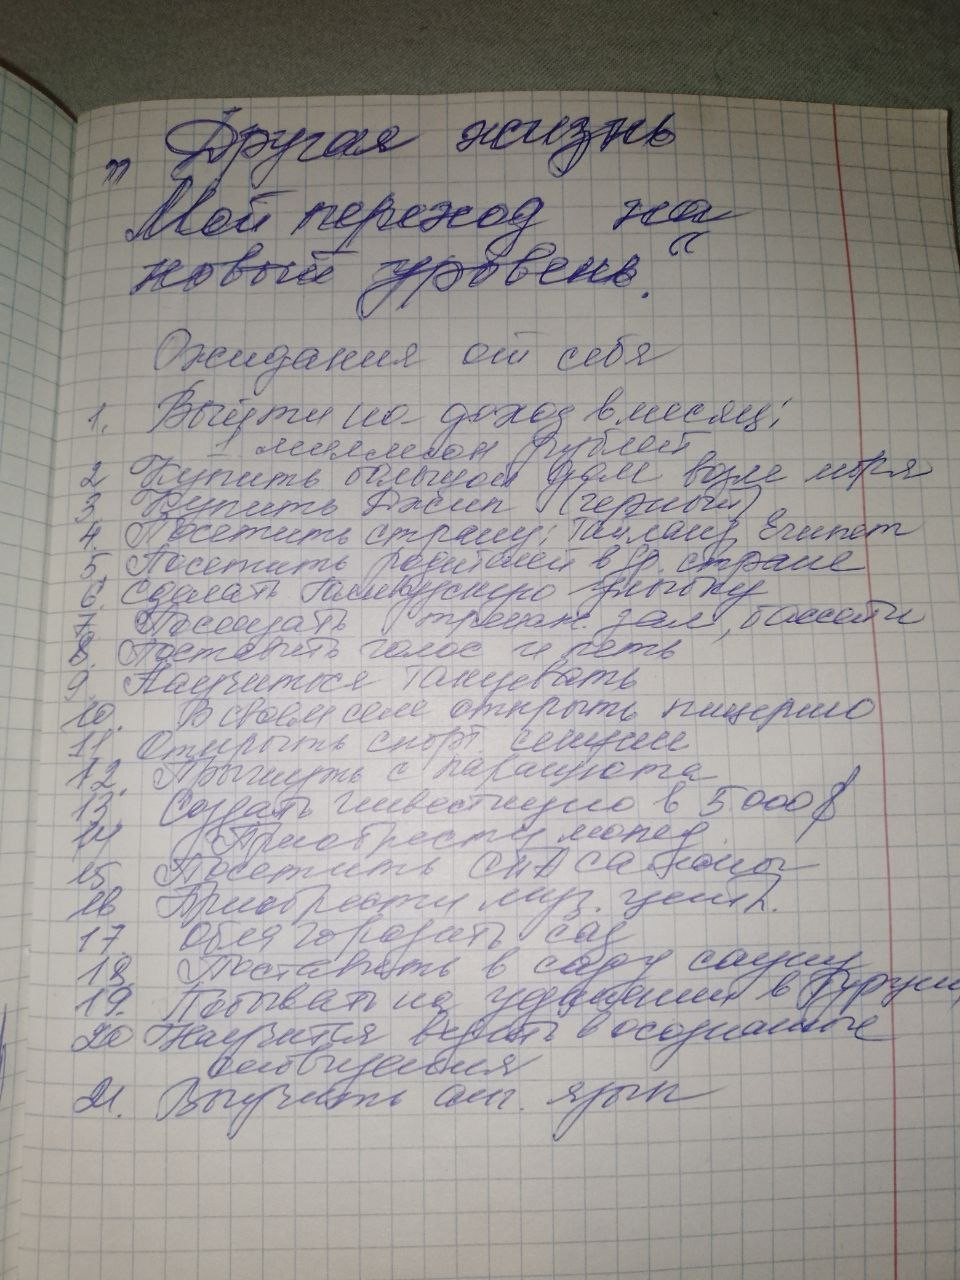 „ Другая жизнь
Мой переход на
новый уровень.“
Ожидания от себя
1. Выйти на доход в месяц;
1 миллион рублей
2 Купить большой дом возле моря
3 Купить Джип (черный)
4. Посетить страну; Тайланд, Египет
5. Посетить родителей в др. стране
6. Сделать Голивудскую улыбку
7. Посещать тренаж. зал, бассейн
8. Поставить голос и петь
9. Научиться танцевать
10. В своем селе открыть пиццерию
11. Открыть спорт. секции
12. Прыгнуть с парашюта
13. Создать инвестицию в 5000 $
14 Приобрести мопед
15. Посетить СПА салоны
16 Приобрести муз. центр.
17. Облагородить сад
18. Поставить в саду сауну
19. Побывать на удинании в
20 Научится входить в осознанные
сновидения
21. Выучить анг. язык